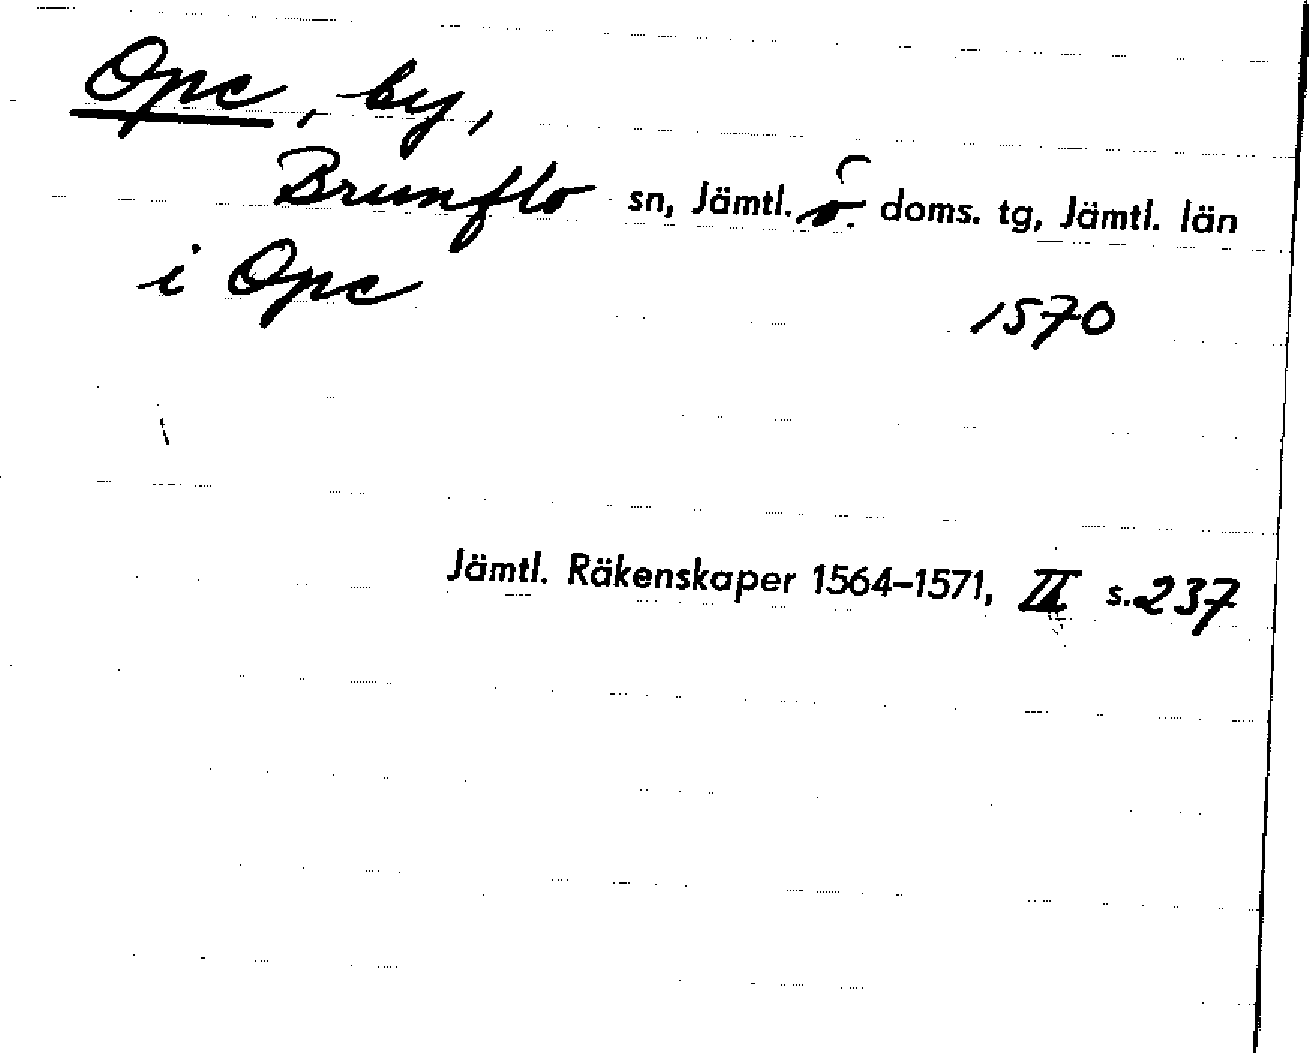 Ope, by,
Brunflo sn, Jämtl. doms. tg, Jämtl. län
i Ope
1570
Jämtl. Räkenskaper 1564–1571, II s. 237